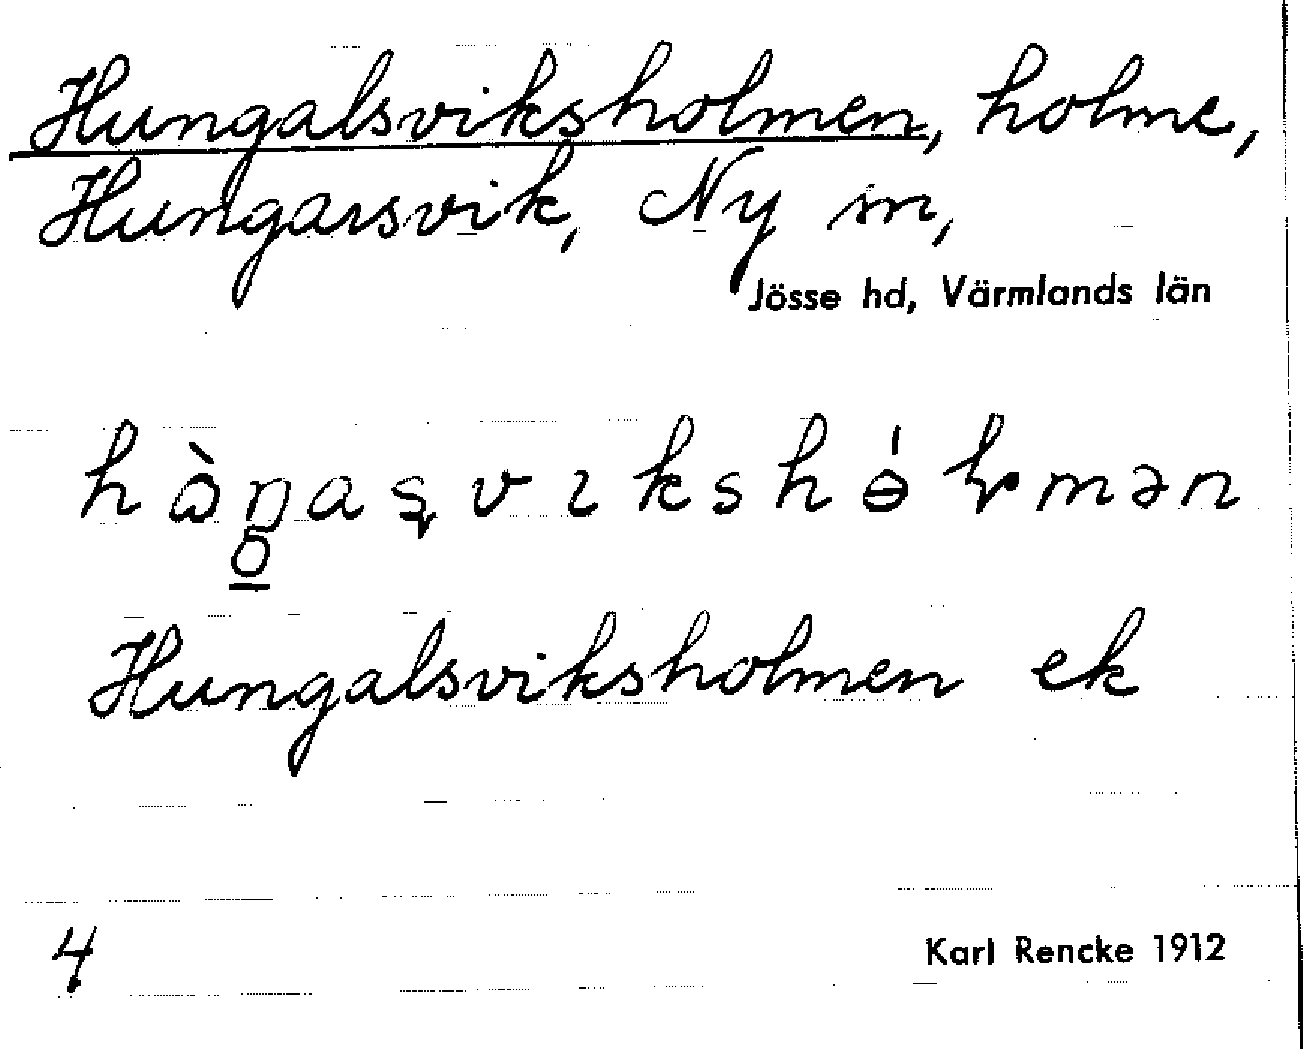 Hungalsviksholmen, holme,
Hungarsvik, Ny sn,
Jösse hd, Värmlands län
Hungalsviksholmen ek
4
Karl Rencke 1912